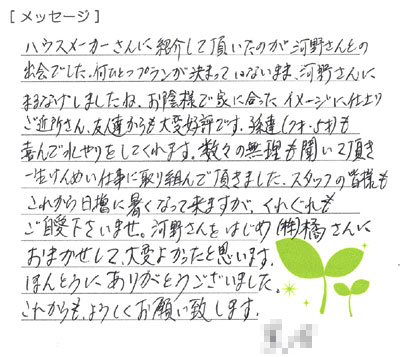 [メッセージ]
ハウスメーカーさんに紹介して頂いたのが河野さんとの
出会でした。何ひとつプランが決まってはいないまま、河野さんに
まるなげしましたね。お陰様で家に合ったイメージに仕上り
ご近所さん、友達からも大変好評です。孫達(7才・5才)も
喜んで水やりをしてくれます。数々の無理も聞いて頂き
一生けんめい仕事に取り組んで頂きました。スタッフの皆様も
これから日増に暑くなって来ますが、くれぐれも
ご自愛下さいませ。河野さんをはじめ(株)橘さんに
おまかせして、大変よかったと思います。
ほんとうにありがとうございました。
これからも、よろしくお願い致します。